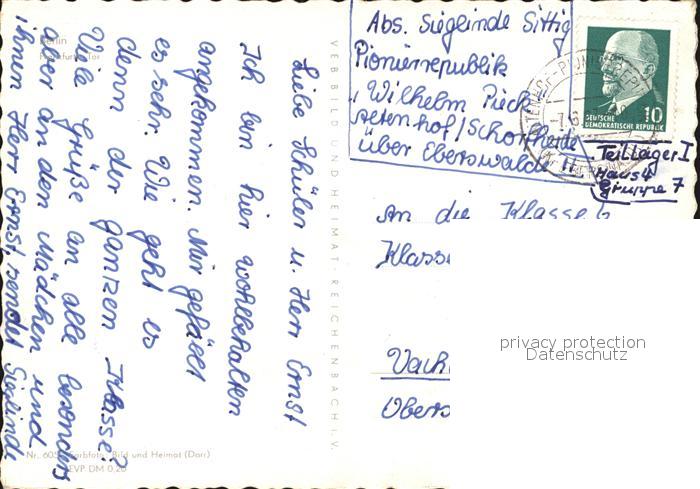 Berlin
Liebe Schüler u. Herr Ernst
Ich bin hier wohlbehalten
angekommen. Mir gefällt
es sehr. Wie geht es
denn der ganzen Klasse?
Viele Grüße an alle besonders
aber an den Mädchen und
ihnen Herr Ernst sendet Sieglind
VEB BILD UND HEIMAT · REICHENBACH i. V.
Bild und Heimat (Darr)
EVP DM 0,20
Abs. Sieglinde Sittig
Pionierrepublik
"Wilhelm Pieck
Altenhof/Schorfheide
über Eberswalde
Teillager I
Haus 4
Gruppe 7
DEUTSCHE
DEMOKRATISCHE REPUBLIK
10
An die Klasse 6
Klass
Vach
Obers
privacy protection
Datenschutz